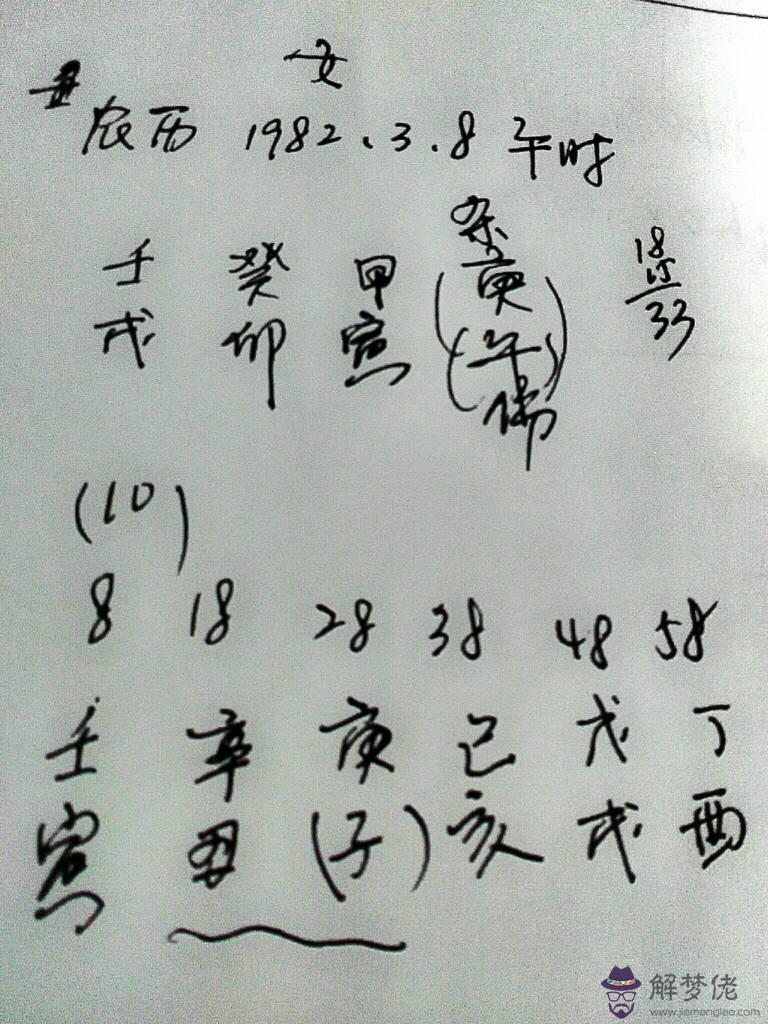 女
农历 1982.3.8 午时
杀
壬 癸 甲 (庚
戌 卯 寅 (午))
伤
18
15
33
(10)
8 18 28 38 48 58
壬 辛 庚 己 戊 丁
寅 丑 (子) 亥 戌 酉
解梦佬
www.jiemenglao.com